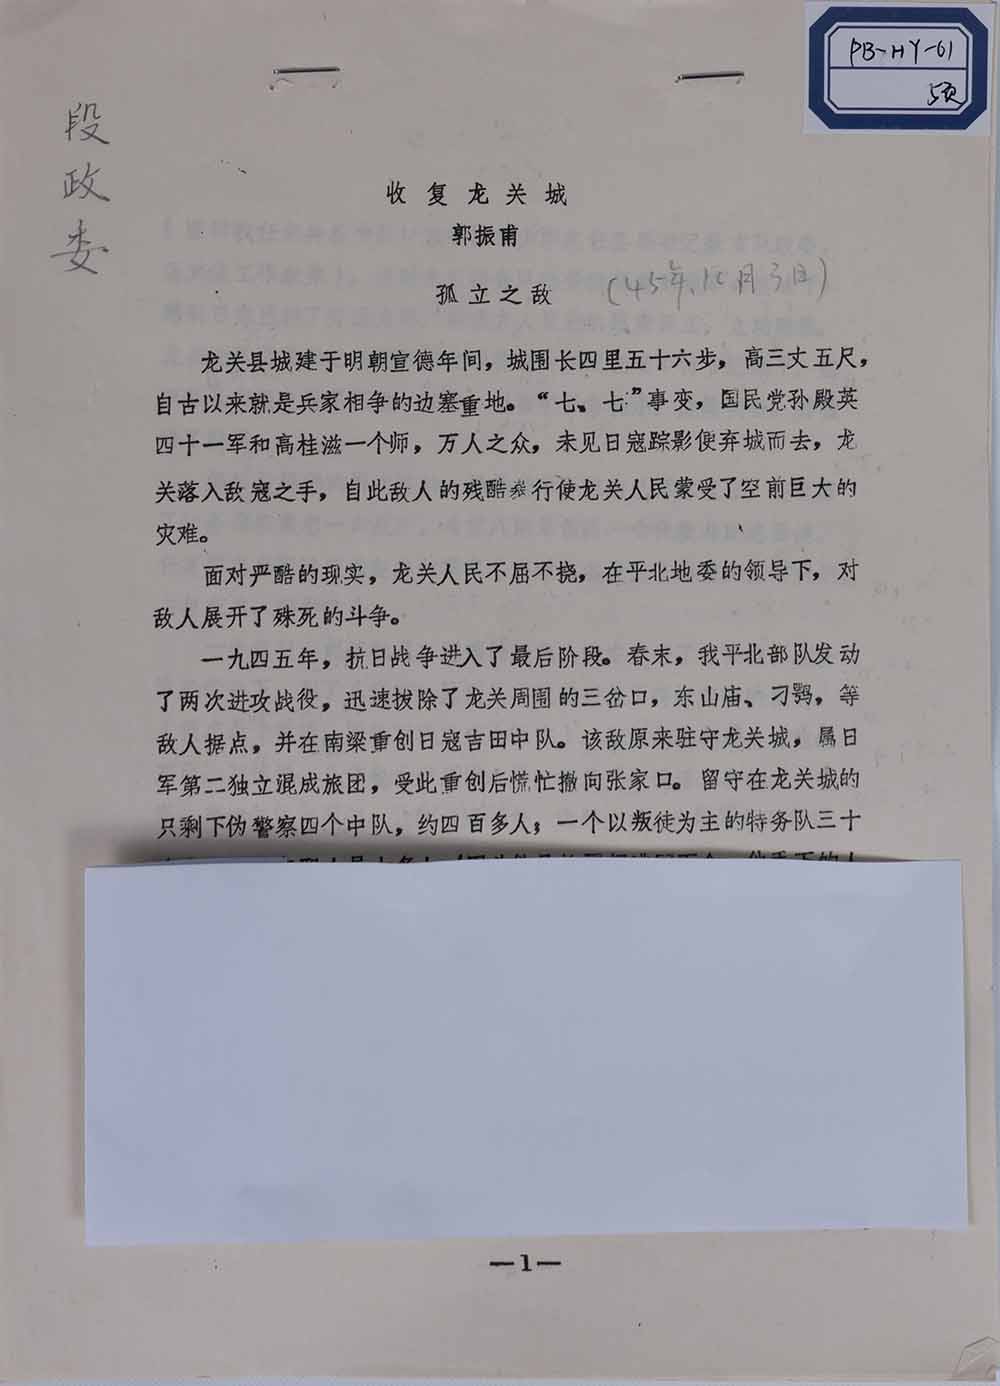 PB-HY-61
5页
段政委
收复龙关城
郭振甫
孤立之敌
龙关县城建于明朝宣德年间，城围长四里五十六步，高三丈五尺，
自古以来就是兵家相争的边塞重地。“七、七”事变，国民党孙殿英
四十一军和高桂滋一个师，万人之众，未见日寇踪影便弃城而去，龙
关落入敌寇之手，自此敌人的残酷暴行使龙关人民蒙受了空前巨大的
灾难。
面对严酷的现实，龙关人民不屈不挠，在平北地委的领导下，对
敌人展开了殊死的斗争。
一九四五年，抗日战争进入了最后阶段。春末，我平北部队发动
了两次进攻战役，迅速拔除了龙关周围的三岔口，东山庙、刁鹗，等
敌人据点，并在南梁重创日寇吉田中队。该敌原来驻守龙关城，属日
军第二独立混成旅团，受此重创后慌忙撤向张家口。留守在龙关城的
只剩下伪警察四个中队，约四百多人；一个以叛徒为主的特务队三十
—1—